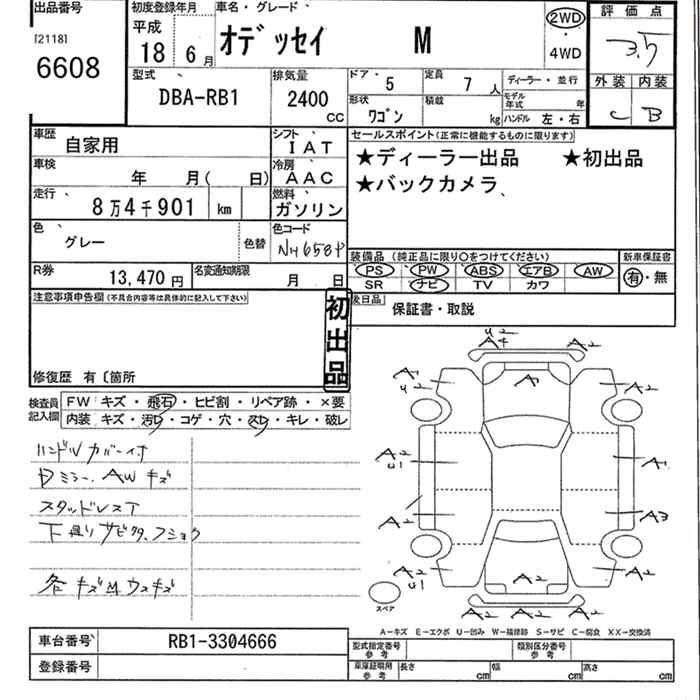 出品番号 初度登録年月 車名・グレード 2WD・4WD 評価点
[2118] 6608
平成 18年 6月
オデッセイ M
3.5
型式 DBA-RB1
排気量 2400 CC
ドア・形状 5 ワゴン
定員 7 人
積載 kg
ディーラー・並行
モデル年式 年
ハンドル 左・右
外装 内装
C B
車歴 自家用
シフト IAT
セールスポイント(正常に機能するものに限ります)
★ディーラー出品 ★初出品
★バックカメラ、
車検 年 月( 日)
冷房 AAC
走行 8万4千901 km
燃料 ガソリン
色 グレー 色替
色コード NH658P
装備品 (純正品に限り○をつけてください) 新車保証書
PS PW ABS エアB AW 有・無
SR ナビ TV カワ
R券 13,470 円
名変通知期限 月 日
注意事項申告欄(不具合内容等は具体的に記入して下さい)
初出品
後日品 保証書・取説
修復歴 有〔箇所
検査員記入欄
FW キズ・飛石・ヒビ割・リペア跡・×要
内装 キズ・汚レ・コゲ・穴・スレ・キレ・破レ
ハンドルカバー付
Dミラー、AWキズ
スタッドレスT
下廻りサビ
各キズ ウスキズ
U2 A4 A2
A1 U2 A1 A2
A2 U1 A1
A2 A3
A2 U1 A2 A2
A2 A2 A2
スペア
A-キズ E-エクボ U-凹み W-補修跡 S-サビ C-腐食 XX-交換済
車台番号 RB1-3304666
登録番号
型式指定番号 参考
類別区分番号 参考
車庫証明用 参考 長さ cm 幅 cm 高さ cm